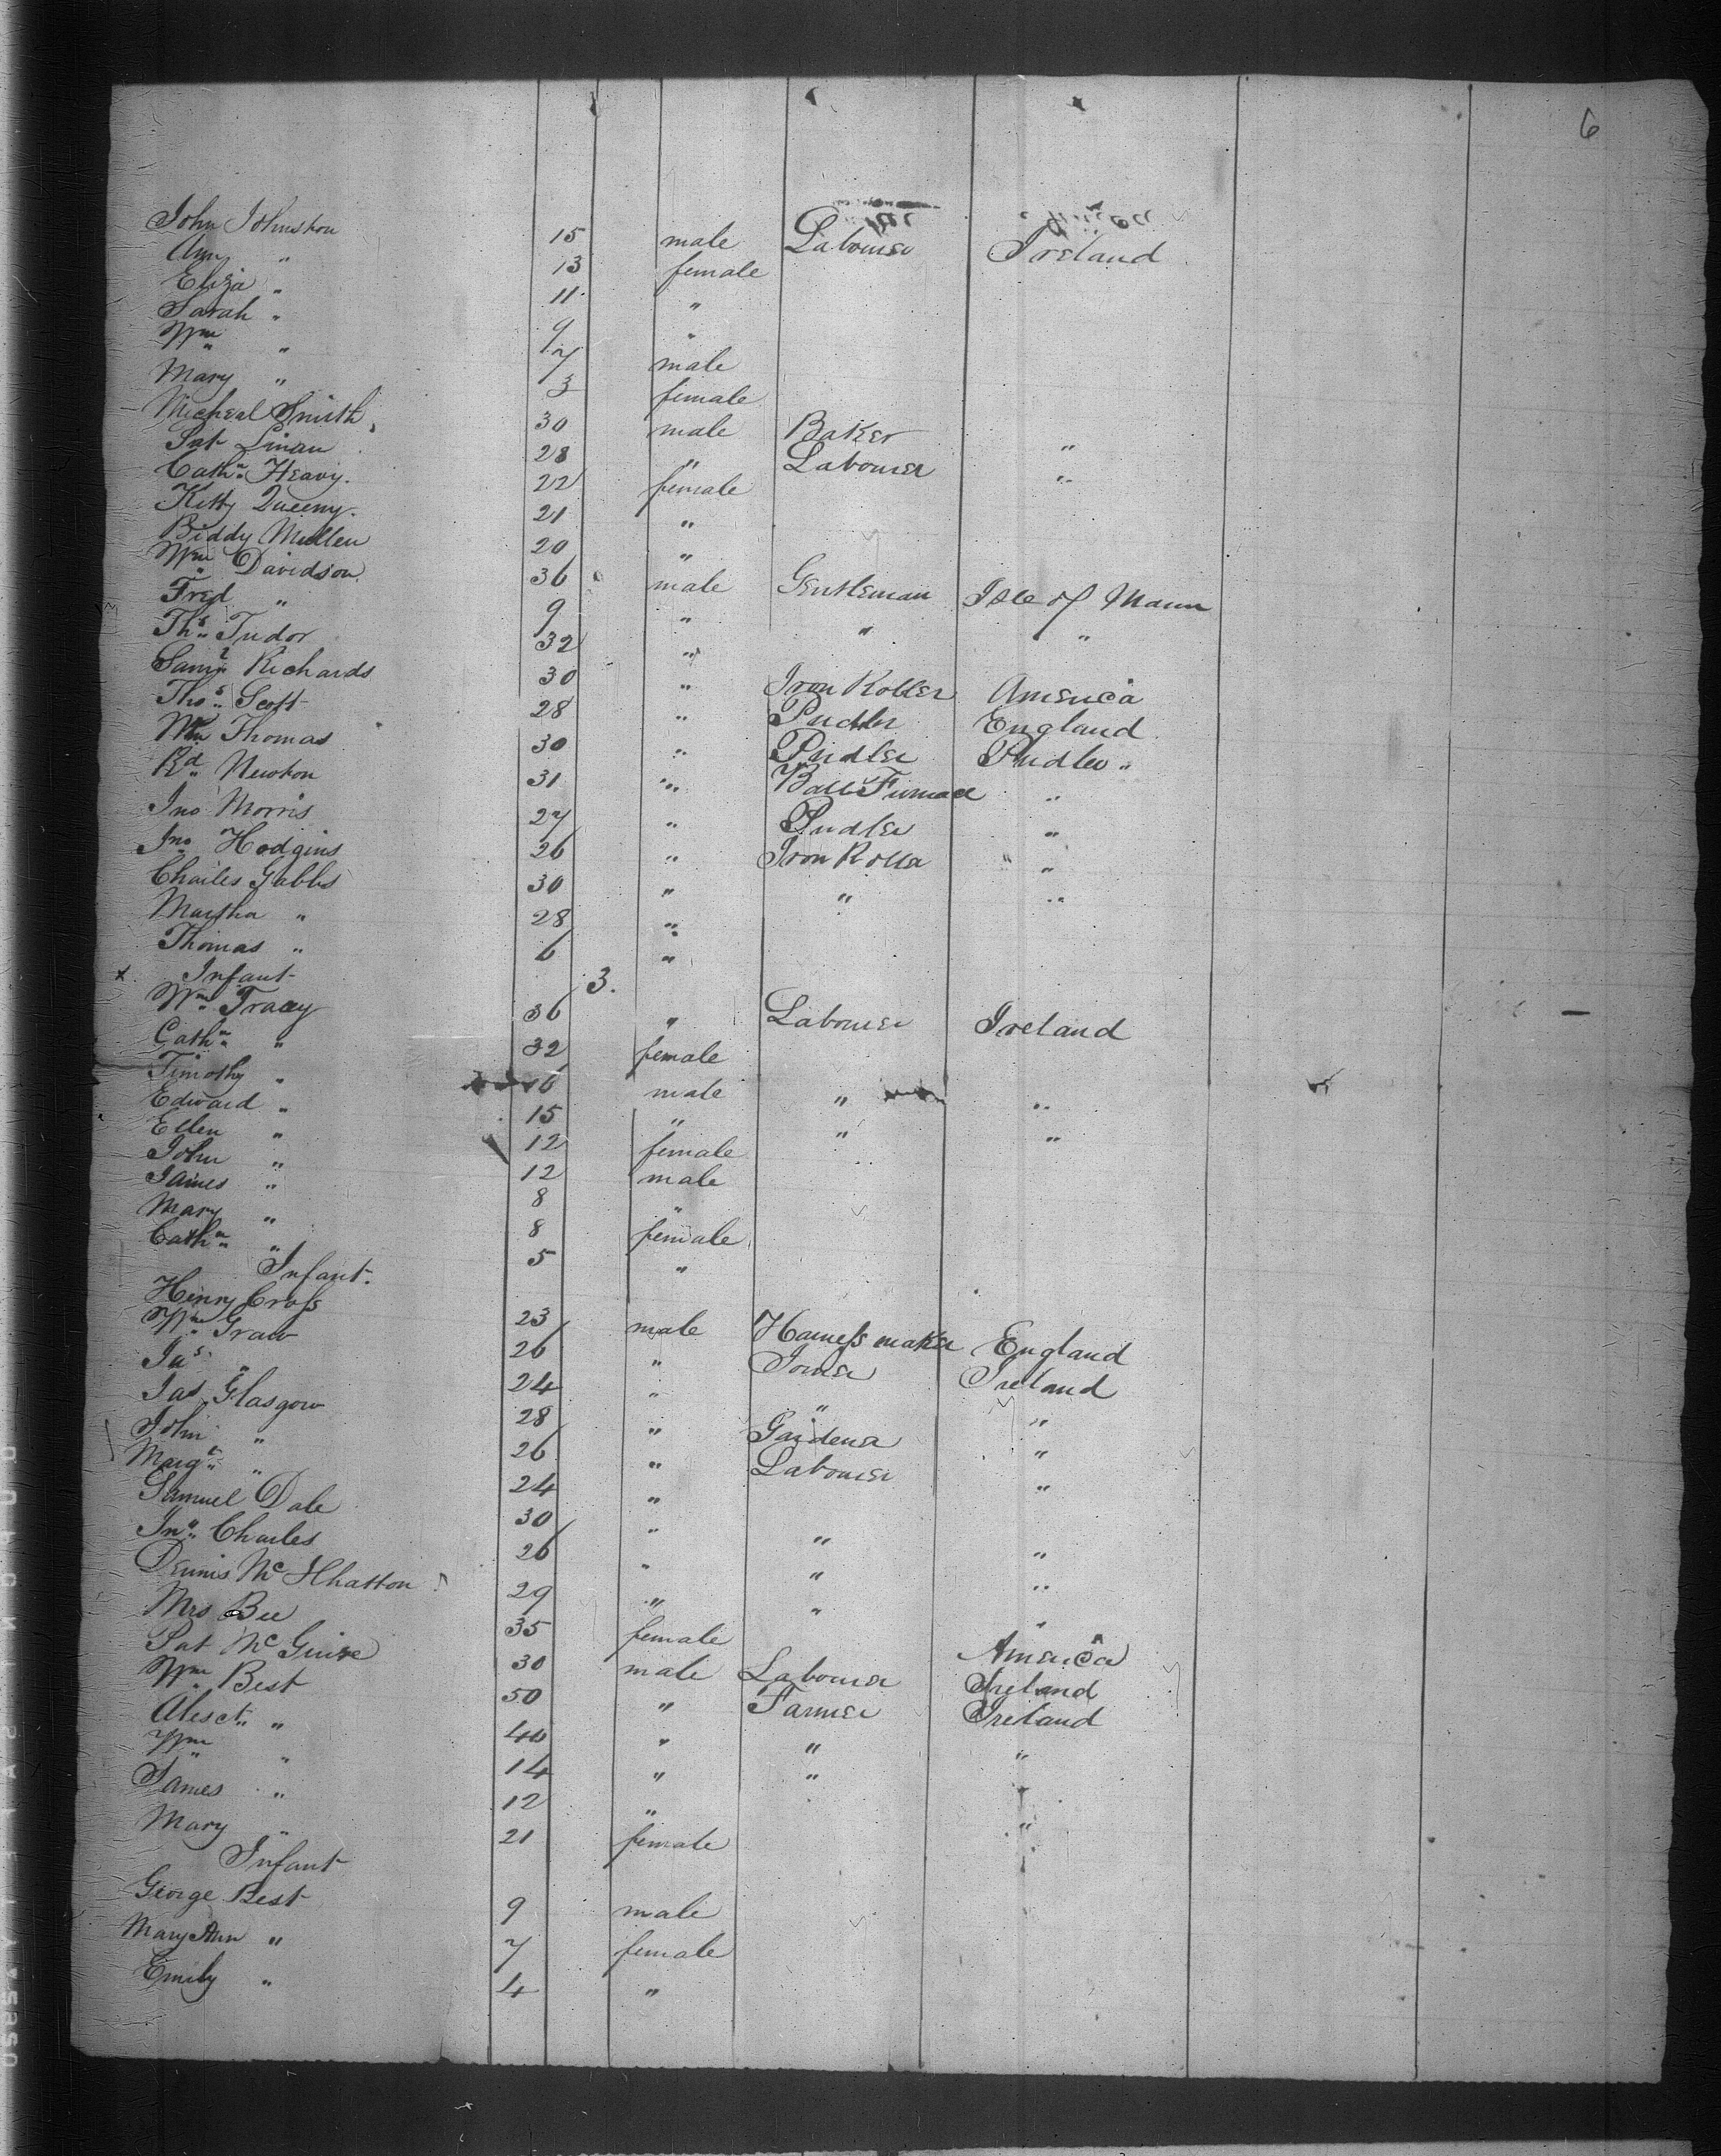 6
John Johnston 15 male Labourer Ireland
Ann " 13 female
Eliza " 11 "
Sarah " 9 "
Wm " 7 male
Mary " 3 female
Micheal Smith 30 male Baker "
Pat Linan 28 " Labourer "
Cathn Heavy. 22 female
Kitty Queeny. 21 "
Biddy Mullen 20 "
Wm Davidson 36 male Gentleman Isle of Mann
Fred " 9 " " "
Ths Tudor 32 "
Saml Richards 30 " Iron Roller America
Thos Scott 28 " Pudler England
Wm Thomas 30 " Pudler Pudler "
Rd Newton 31 " Ball Furnace "
Jno Morris 27 " Pudler "
Jno Hodgins 26 " Iron Roller "
Charles Gabbs 30 " " "
Martha " 28 "
Thomas " 6 "
x Infant 3.
Wm Tracey 36 " Labourer Ireland
Cathn " 32 female
Timothy " 16 male " "
Edward " 15 " " "
Ellen " 12 female
John " 12 male
James " 8 "
Mary " 8 female
Cathn " 5 "
Infant.
Henry Cross 23 male Harness maker England
Wm Graw 26 " Joiner Ireland
Jas " 24 " " "
Jas Glasgow 28 " Gardener "
John " 26 " Labourer "
Margt " 24 "
Samuel Dale 30 " " "
Jno Charles 26 " " "
Dennis Mc 29 " " "
Mrs Bee 35 female America
Pat McGuire 30 male Labourer Ireland
Wm Best 50 " Farmer Ireland
" 40 " " "
Wm " 14 " "
James " 12 "
Mary " 21 female "
Infant
George Best 9 male
Mary Ann " 7 female
Emily " 4 "